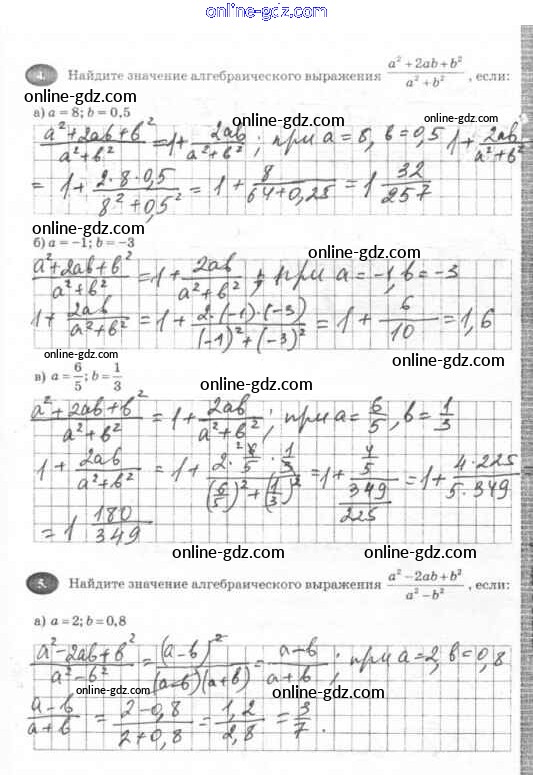 online-gdz.com
4. Найдите значение алгебраического выражения (a² + 2ab + b²)/(a² + b²), если:
online-gdz.com online-gdz.com
а) a = 8; b = 0,5
(a²+2ab+b²)/(a²+b²) = 1+ 2ab/(a²+b²); при a = 8, b = 0,5 1+ 2ab/(a²+b²)
= 1+ (2·8·0,5)/(8²+0,5²) = 1+ 8/(64+0,25) = 1 32/257
online-gdz.com online-gdz.com
б) a = −1; b = −3
online-gdz.com
(a²+2ab+b²)/(a²+b²) = 1+ 2ab/(a²+b²); при a = -1, b = -3
1+ 2ab/(a²+b²) = 1+ (2·(-1)·(-3))/((-1)²+(-3)²) = 1+ 6/10 = 1,6
online-gdz.com online-gdz.com
в) a = 6/5; b = 1/3
online-gdz.com
(a²+2ab+b²)/(a²+b²) = 1+ 2ab/(a²+b²); при a = 6/5, b = 1/3
online-gdz.com online-gdz.com
1+ 2ab/(a²+b²) = 1+ (2·6/5·1/3)/((6/5)²+(1/3)²) = 1+ (4/5)/(349/225) = 1+ (4·225)/(5·349)
= 1 180/349
online-gdz.com online-gdz.com
5. Найдите значение алгебраического выражения (a² − 2ab + b²)/(a² − b²), если:
online-gdz.com online-gdz.com
а) a = 2; b = 0,8
(a²-2ab+b²)/(a²-b²) = (a-b)²/((a-b)(a+b)) = (a-b)/(a+b); при a = 2, b = 0,8
online-gdz.com online-gdz.com
(a-b)/(a+b) = (2-0,8)/(2+0,8) = 1,2/2,8 = 3/7.
online-gdz.com